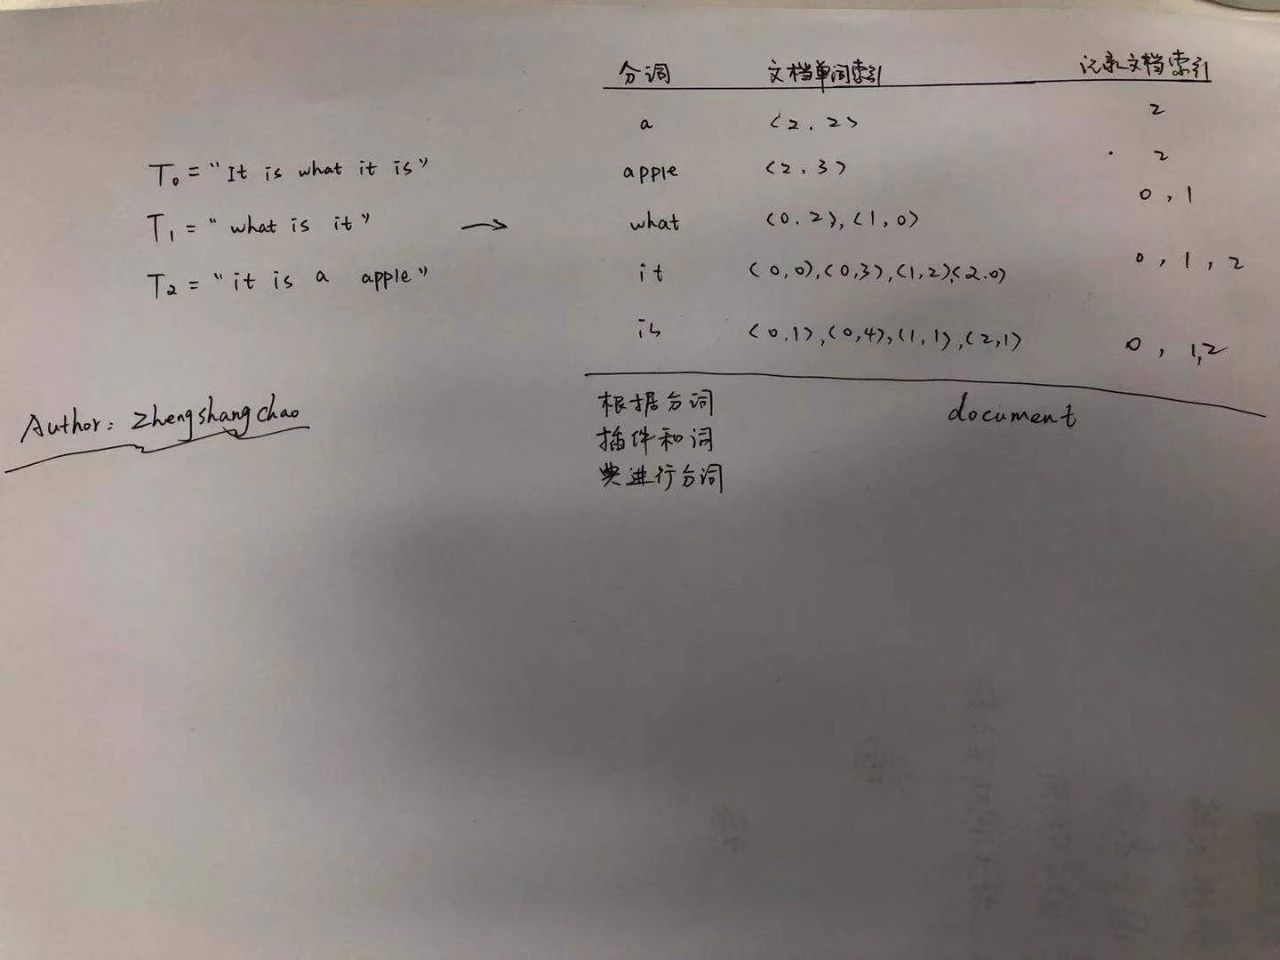 分词 文档单词索引 记录文档索引
a <2,2> 2
apple <2,3> 2
what <0,2>,<1,0> 0,1
it <0,0>,<0,3>,<1,2>,<2.0> 0,1,2
is <0,1>,<0,4>,<1,1>,<2,1> 0,1,2
T0="It is what it is"
T1="what is it" →
T2="it is a apple"
根据分词 document
插件和词
典进行分词
Author: Zhengshangchao